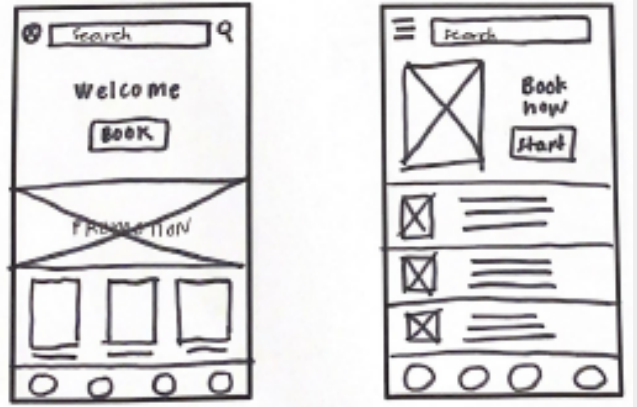 Search
Welcome
BOOK
PROMOTION
Search
Book
now
Start